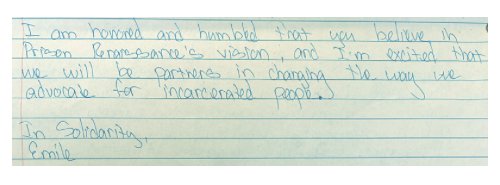 I am honored and humbled that you believe in
Prison Renaissance's vision, and I'm excited that
we will be partners in changing the way we
advocate for incarcerated people.
In Solidarity,
Emile